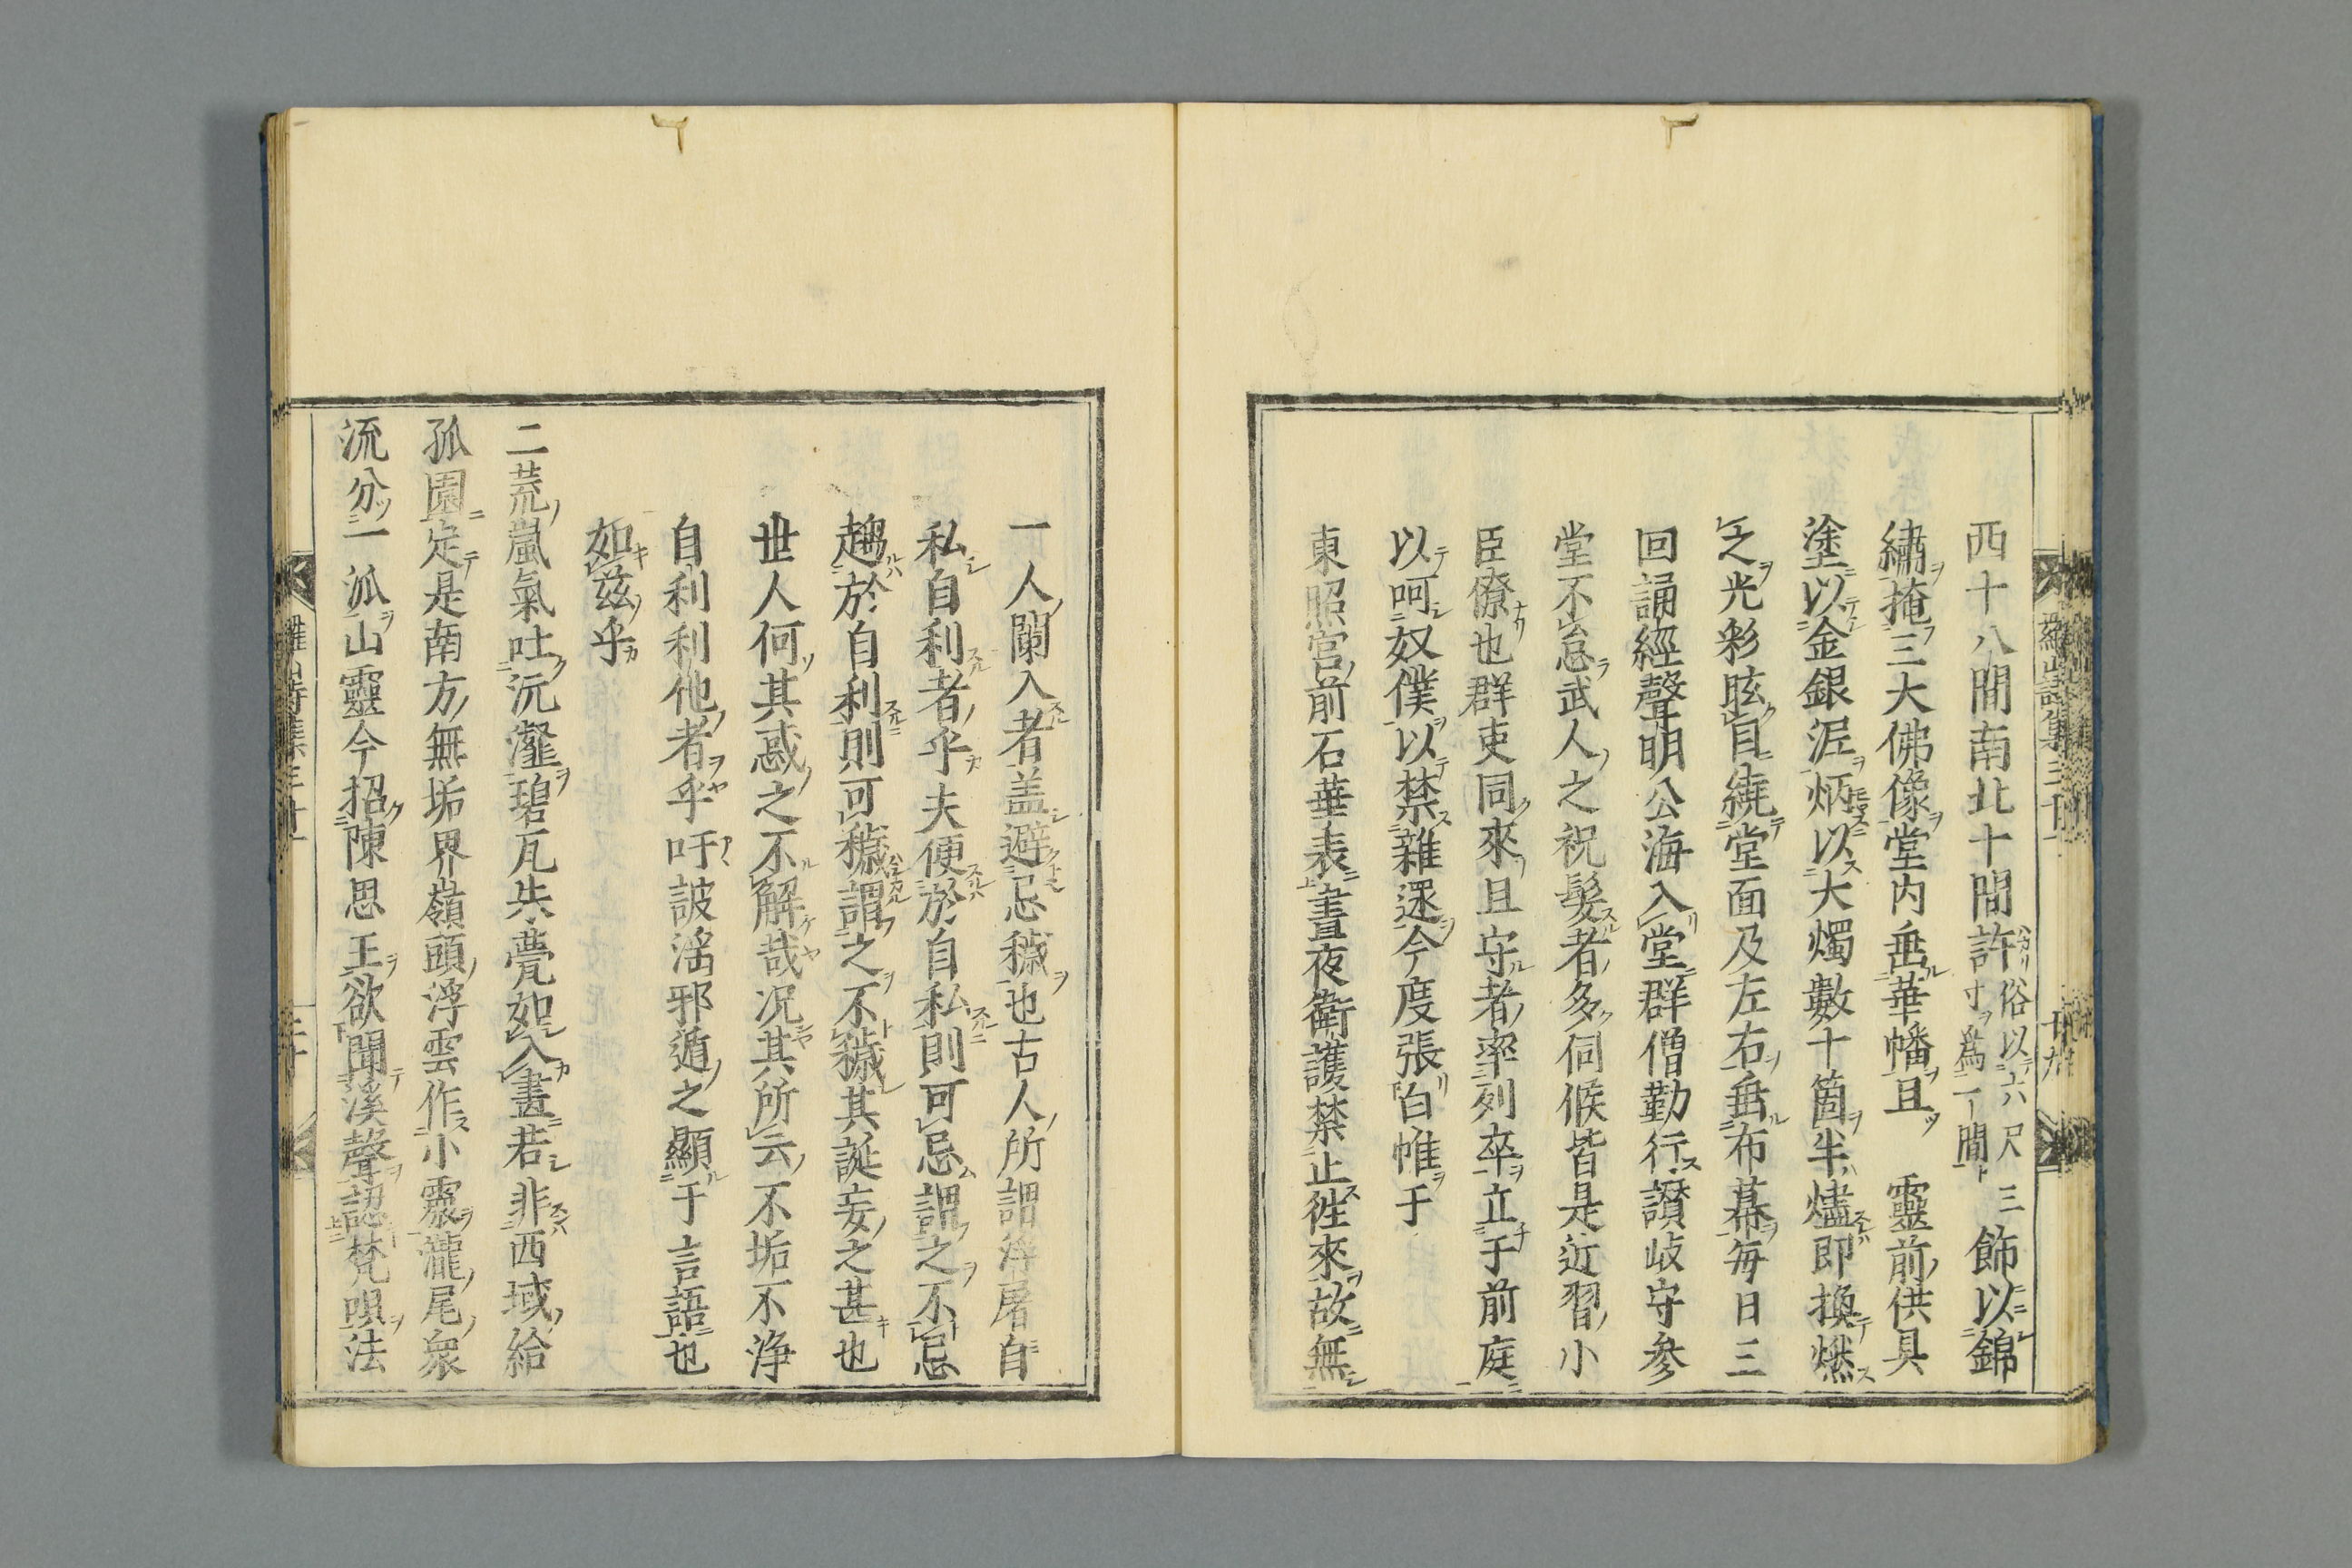 西十八間南北十間許俗以六尺三寸爲一間飾以錦
繡掩三大佛像堂内垂華幡且　靈前供具
塗以金銀泥炳以大燭數十箇半燼即換燃
之光彩眩目繞堂面及左右垂布幕毎日三
回誦經聲明公海入堂群僧勤行讃岐守參
堂不怠武人之祝髮者多伺候皆是近習小
臣僚也群吏同來且守者率列卒立于前庭
以呵奴僕以禁雜還今度張白帷于
東照宮前石華表晝夜衛護禁止徃來故無
一人闌入者盖避忌穢也古人所謂浮屠自
私自利者乎夫便於自私則可忌謂之不忌
趨於自利則可穢謂之不穢其誕妄之甚也
世人何其惑之不解哉况其所云不垢不浄
自利利他者乎吁詖滛邪遁之顯于言語也
如兹乎
二荒嵐氣吐沆瀣碧瓦朱甍如入畫若非西域給
孤園定是南方無垢界嶺頭浮雲作小霰瀧尾衆
流分一派山靈今招陳思王欲聞溪聲認梵唄法
羅山詩集三十